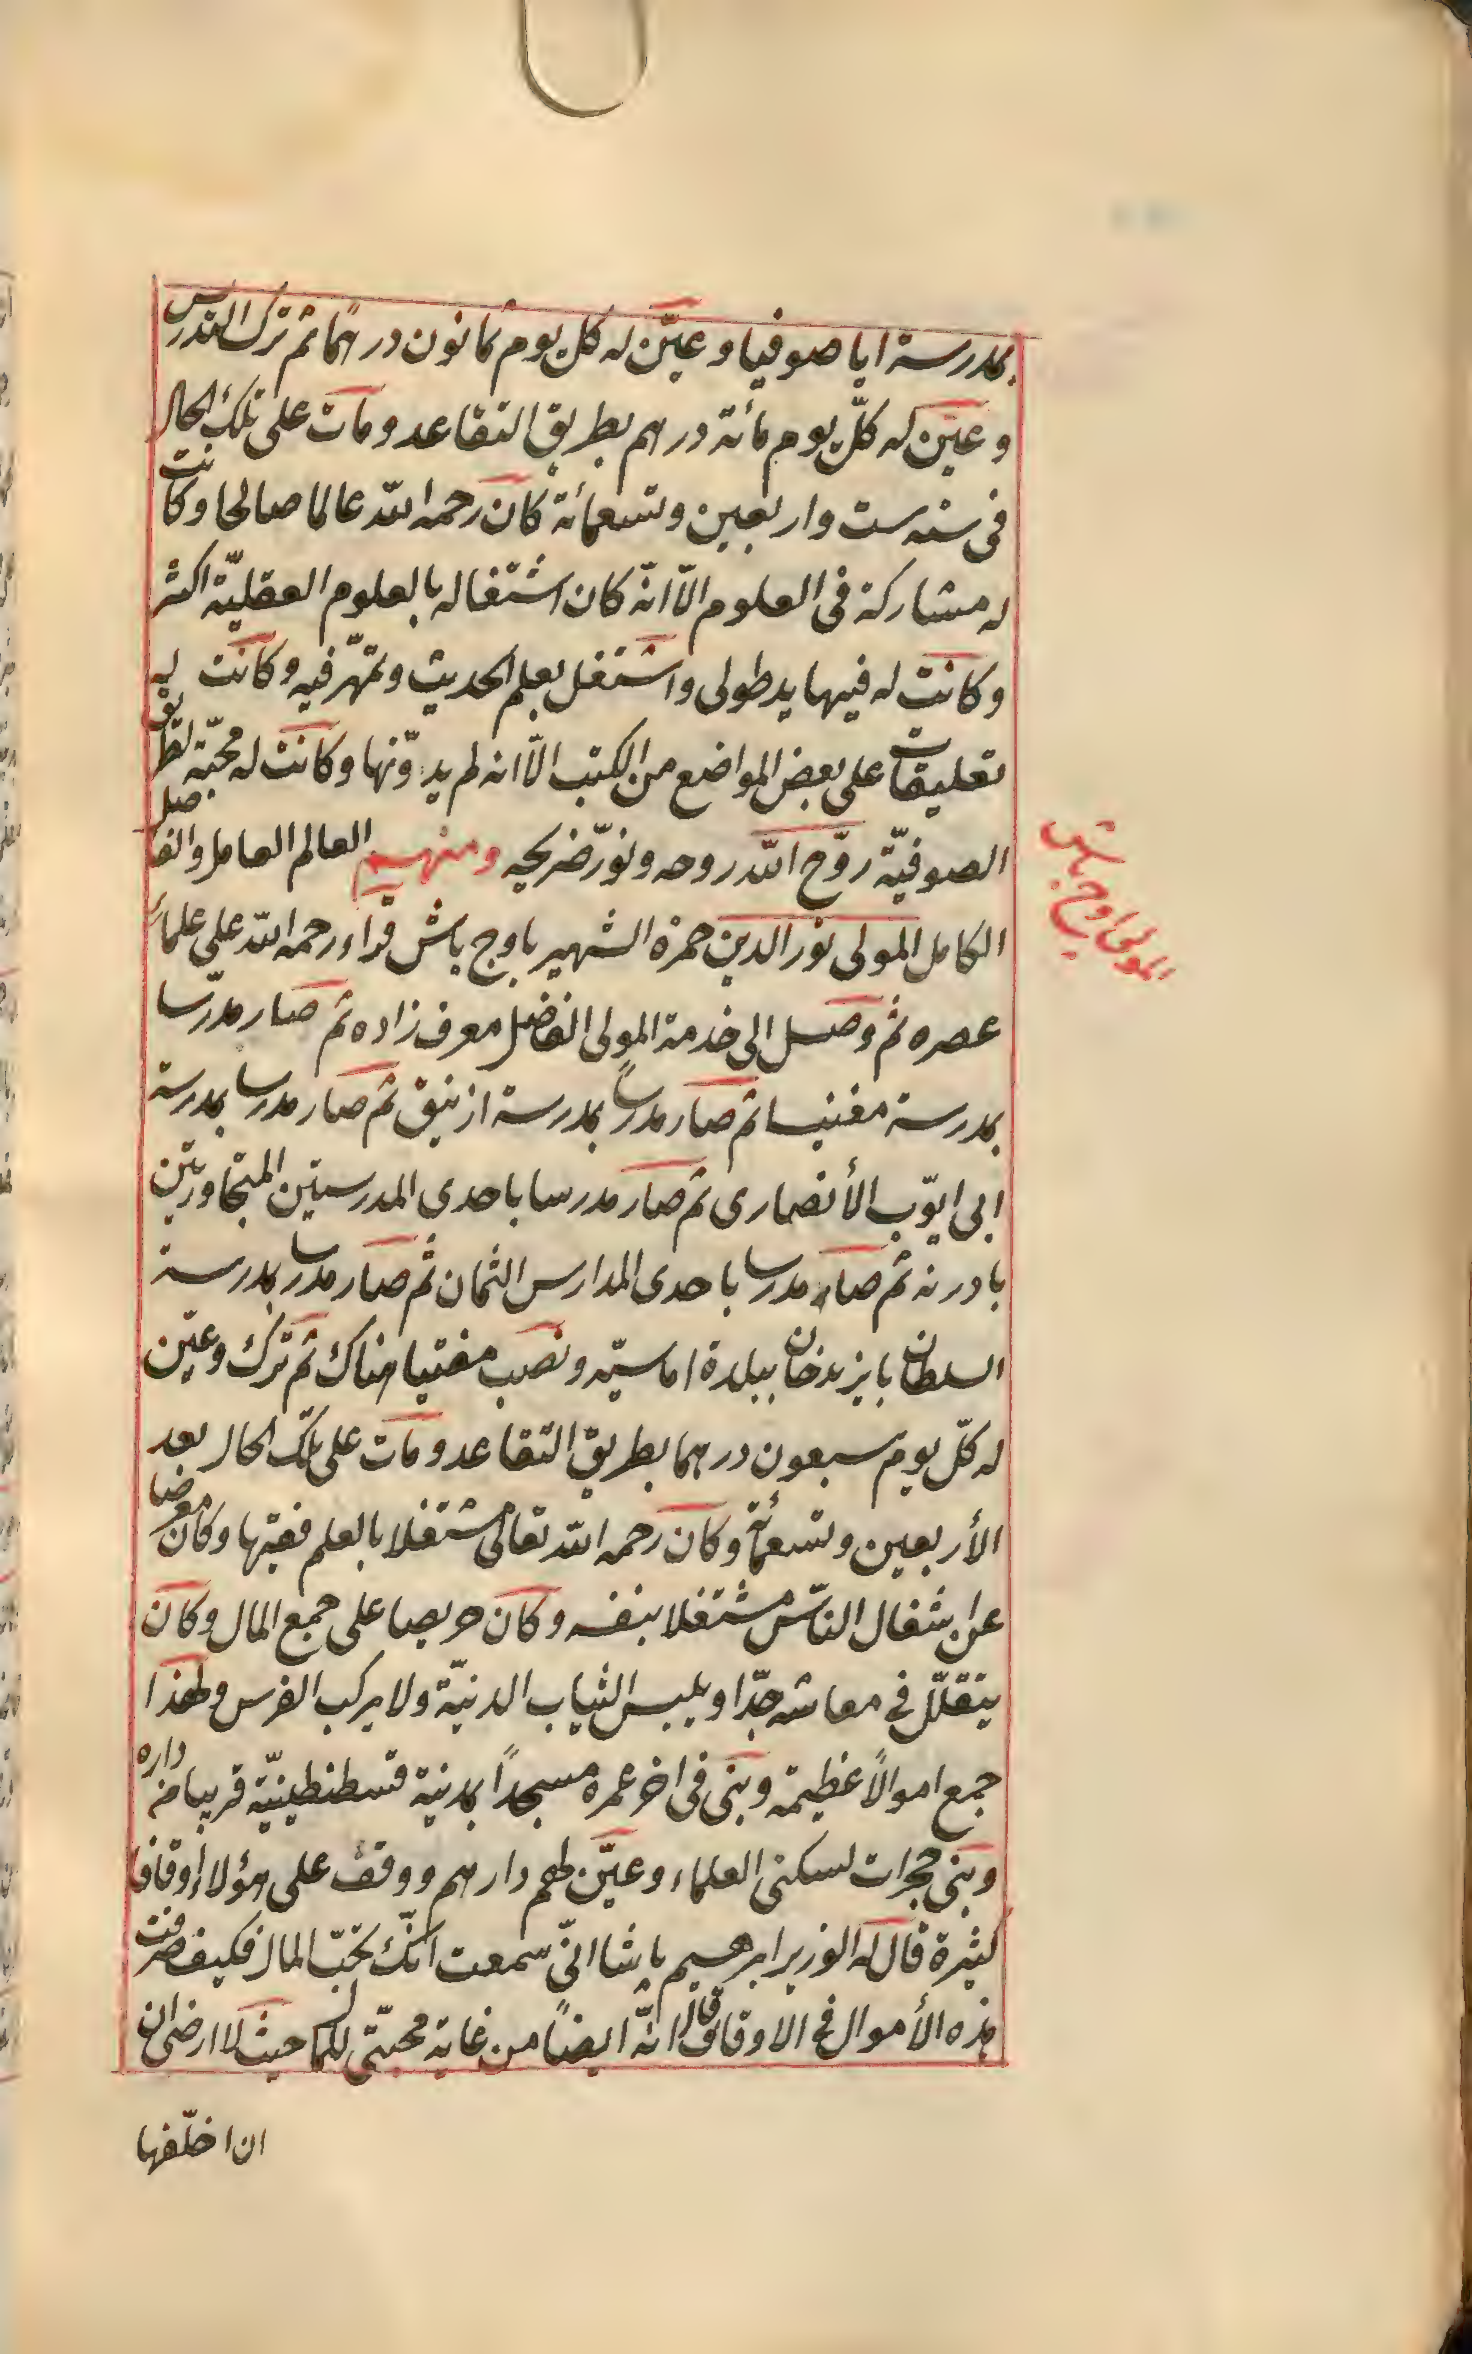 بمدرسة ايا صوفيا وعيّن له كل يوم ثمانون درهما ثم ترك التدريس
وعيّن له كلّ يوم مائة درهم بطريق التقاعد ومات على تلك الحال
فى سنه ست واربعين وتسعمائة كان رحمه الله عالما صالحا وكانت
له مشاركة فى العلوم الاّ انّه كان اشتغاله بالعلوم العقليّة اكثر
وكانت له فيها يد طولى واشتغل بعلم الحديث وتمهّر فيه وكانت له
تعليقات على بعض المواضع من الكتب الاّ انه لم يدوّنها وكانت له محبّة لطريق
الصوفيّة روّح الله روحه ونوّر ضريحه ومنهم العالم العامل والفاضل
المولى اوج باش
الكامل المولى نور الدين حمزه الشهير باوج باش قراء رحمه الله على علماء
عصره ثم وصل الى خدمة المولى الفاضل معرف زاده ثم صار مدرّسا
بمدرسة مغنيسا ثم صار مدرساً بمدرسة ازنيق ثم صار مدرسا بمدرسة
ابى ايوّب الأنصارى ثم صار مدرسا باحدى المدرستين المتجاورتين
بادرنه ثم صار مدرسا باحدى المدارس الثمان ثم صار مدرسا بمدرسة
السلطان بايزيد خان ببلدة اماسيّه ونصب مفتيا هناك ثم ترك وعيّن
له كلّ يوم سبعون درهما بطريق التقاعد ومات على تلك الحال بعد
الأربعين وتسعمائة وكان رحمه الله تعالى مشتغلا بالعلم فقيها وكان معرضا
عن اشغال الناس مشتغلا بنفسه وكان حريصا على جمع المال وكان
يتقلّل فى معاشه جدّا ويلبس الثياب الدنيّة ولا يركب الفرس ولهذا
جمع اموالاً عظيمة وبنى فى اخر عمره مسجداً بمدينة قسطنطينيّة قريبا من داره
وبنى حجرات لسكنى العلماء وعيّن لهم دارهم ووقف على هؤلاء اوقافا
كثيرة قال له الوزير ابرهيم باشا انّى سمعت انّك تحبّ المال فكيف صرفت
هذه الأموال فى الاوقاف قال انّه ايضاً من غاية محبّتى للمال حيث لا ارضى ان
ان اخلّفها